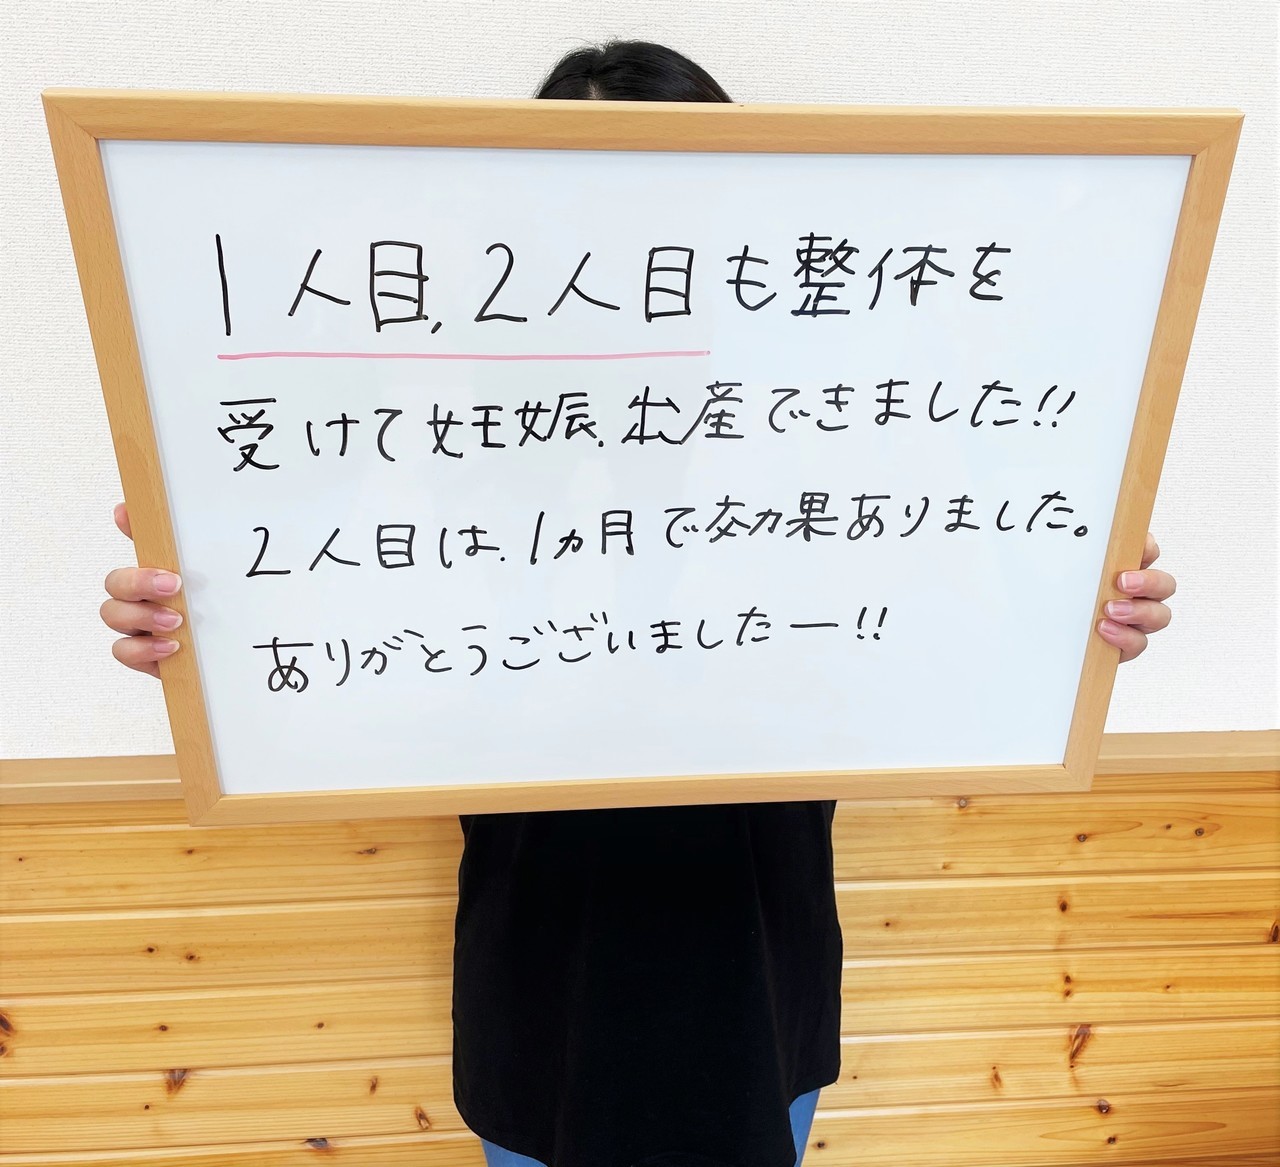 1人目,2人目も整体を
受けて妊娠、出産できました!!
2人目は、1ヵ月で効果ありました。
ありがとうございましたー!!